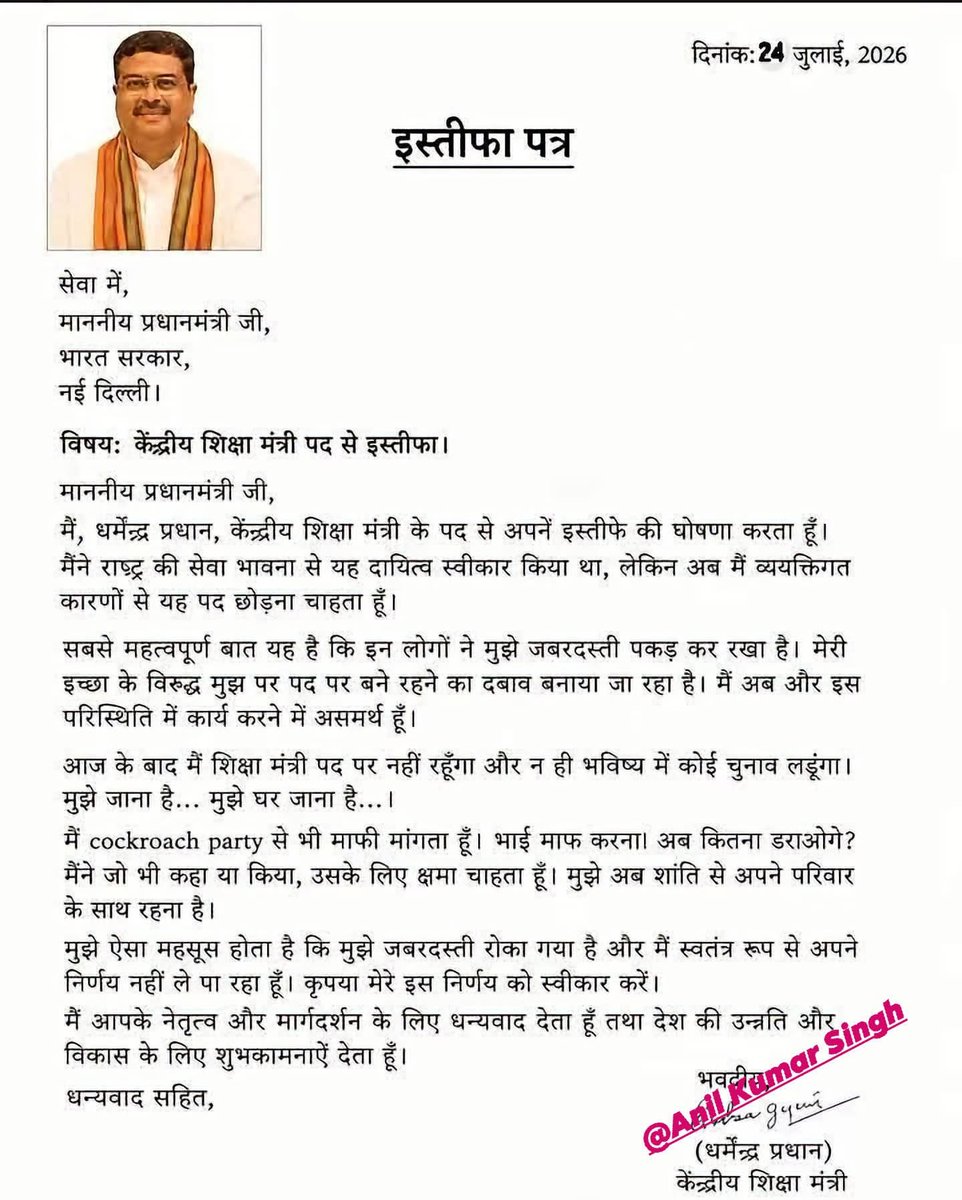 दिनांक:24 जुलाई, 2026
इस्तीफा पत्र
सेवा में,
माननीय प्रधानमंत्री जी,
भारत सरकार,
नई दिल्ली।
विषय: केंद्रीय शिक्षा मंत्री पद से इस्तीफा।
माननीय प्रधानमंत्री जी,
मैं, धर्मेंद्र प्रधान, केंन्द्रीय शिक्षा मंत्री के पद से अपनें इस्तीफे की घोषणा करता हूँ।
मैंने राष्ट्र की सेवा भावना से यह दायित्व स्वीकार किया था, लेकिन अब मैं व्ययक्तिगत
कारणों से यह पद छोड़ना चाहता हूँ।
सबसे महत्वपूर्ण बात यह है कि इन लोगों ने मुझे जबरदस्ती पकड़ कर रखा है। मेरी
इच्छा के विरुद्ध मुझ पर पद पर बने रहने का दबाव बनाया जा रहा है। मैं अब और इस
परिस्थिति में कार्य करने में असमर्थ हूँ।
आज के बाद मैं शिक्षा मंत्री पद पर नहीं रहूँगा और न ही भविष्य में कोई चुनाव लडूंगा।
मुझे जाना है... मुझे घर जाना है...।
मैं cockroach party से भी माफी मांगता हूँ। भाई माफ करना। अब कितना डराओगे?
मैंने जो भी कहा या किया, उसके लिए क्षमा चाहता हूँ। मुझे अब शांति से अपने परिवार
के साथ रहना है।
मुझे ऐसा महसूस होता है कि मुझे जबरदस्ती रोका गया है और मैं स्वतंत्र रूप से अपने
निर्णय नहीं ले पा रहा हूँ। कृपया मेरे इस निर्णय को स्वीकार करें।
मैं आपके नेतृत्व और मार्गदर्शन के लिए धन्यवाद देता हूँ तथा देश की उन्नति और
विकास के लिए शुभकामनाऐं देता हूँ।
धन्यवाद सहित,
भवदीय,
@Anil Kumar Singh
(धर्मेंन्द्र प्रधान)
केंन्द्रीय शिक्षा मंत्री